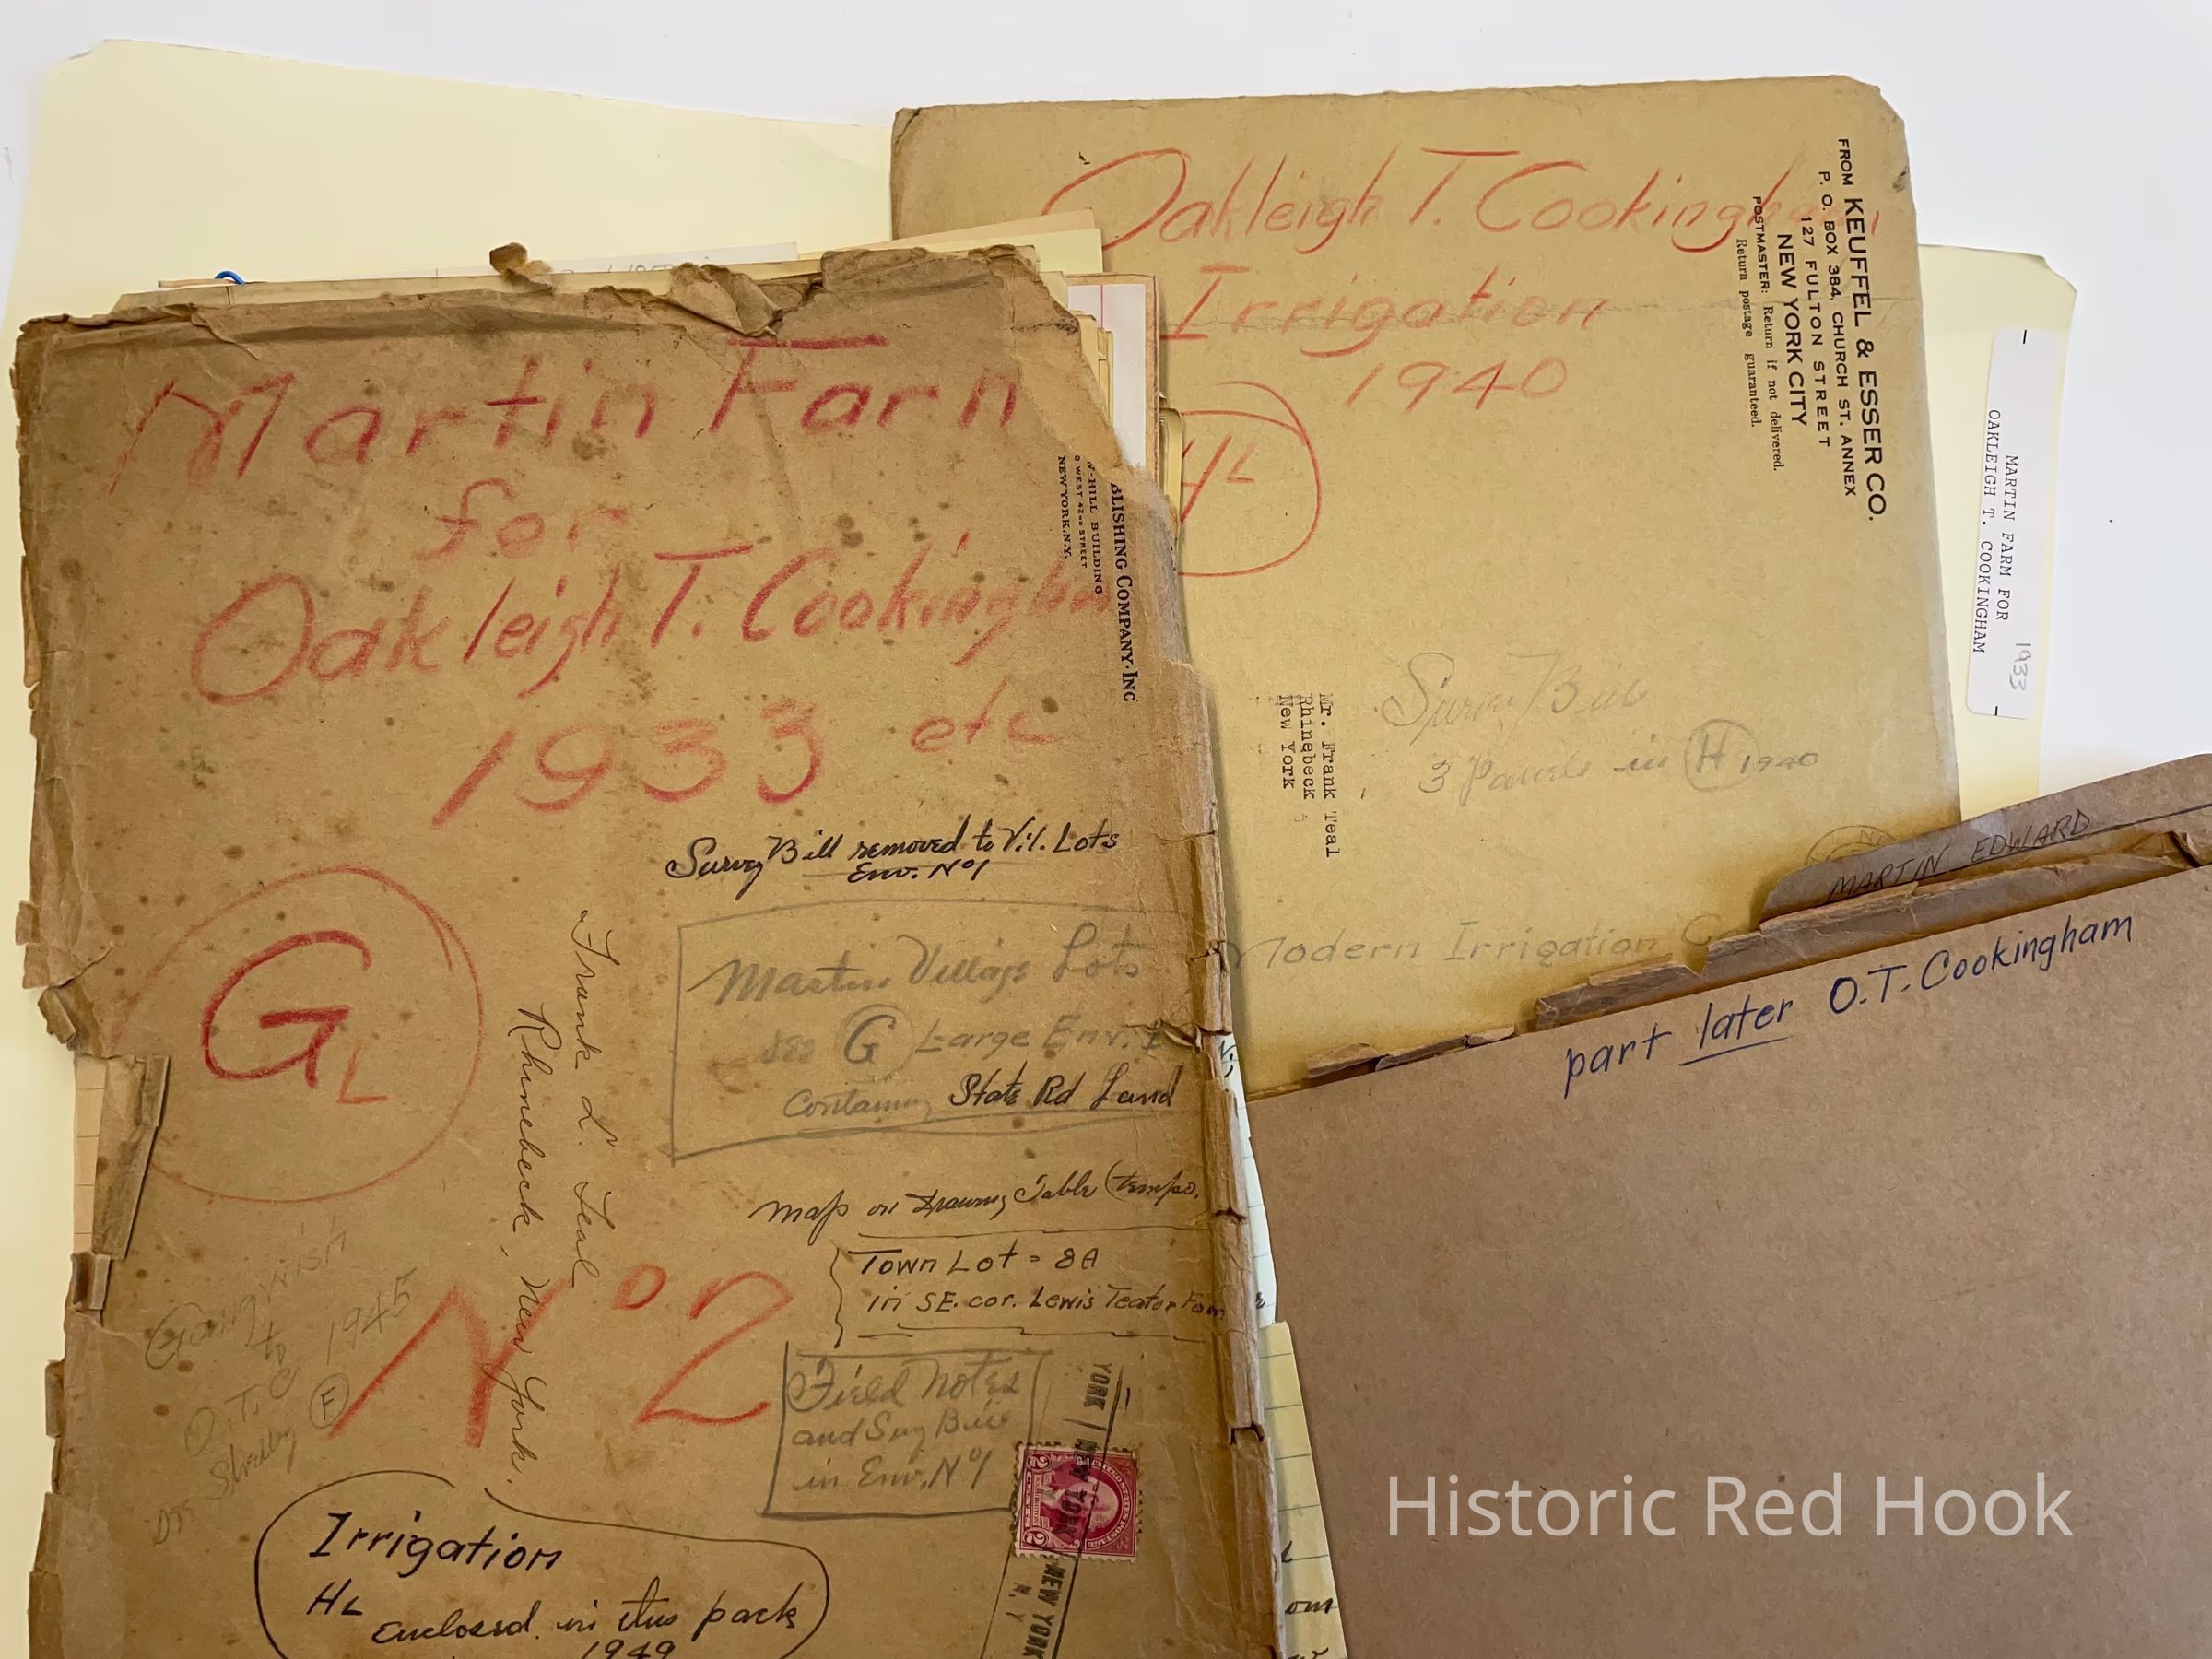 Martin Farm
for
Oakleigh T. Cookingham
1933 etc
BLISHING COMPANY·INC
W-HILL BUILDING
WEST 42ND STREET
NEW YORK, N.Y.
Survey Bill removed to Vil. Lots
Env. Nº1
GL
Frank L. Teal
Rhinebeck, New York.
Martin Village Lots
see G Large Env. 1
Containing State Rd Land
Map on Drawing Table (tempo.
Town Lot = 8A
in SE. cor. Lewis Teator Farm
Nº2
Field Notes
and Svy Bill
in Env. Nº1
to
O.T.C 1945
F
Irrigation
HL
enclosed in this pack
1949
2 2
NEW YORK
N. Y.
Oakleigh T. Cookingham
Irrigation
1940
HL
FROM KEUFFEL & ESSER CO.
P. O. BOX 384, CHURCH ST. ANNEX
127 FULTON STREET
NEW YORK CITY
POSTMASTER: Return if not delivered.
Return postage guaranteed.
Mr. Frank Teal
Rhinebeck
New York
Survey Bill
3 Panels in H 1940
Modern Irrigation
MARTIN FARM FOR 1933
OAKLEIGH T. COOKINGHAM
MARTIN EDWARD
part later O.T. Cookingham
Historic Red Hook